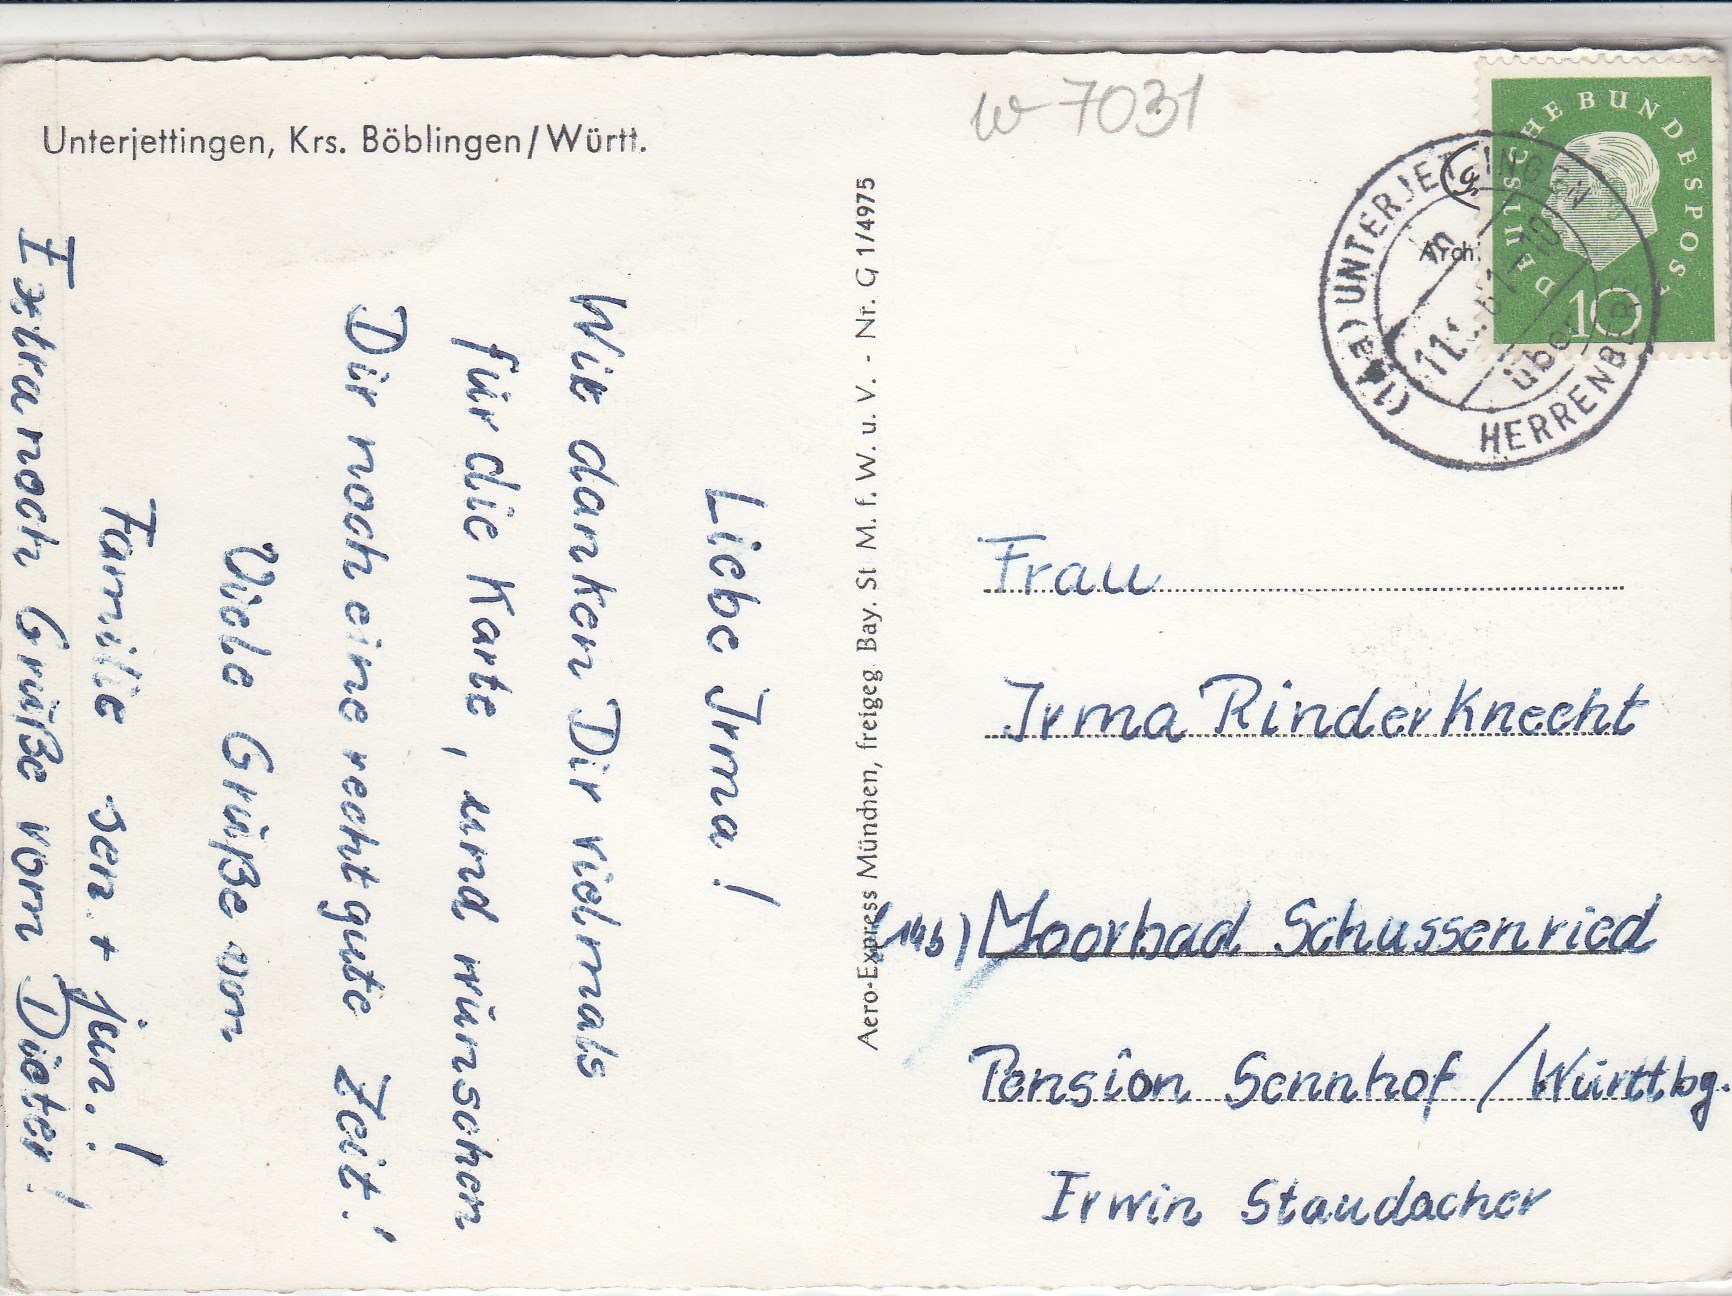 Unterjettingen, Krs. Böblingen/Württ.
w 7031
DEUTSCHE BUNDESPOST
10
(14a) UNTERJETTINGEN
über
HERRENBERG
Arch.
Liebe Irma!
Wir danken Dir vielmals
für die Karte, und wünschen
Dir noch eine recht gute Zeit!
Viele Grüße von
Familie sen. + jun.!
Extra noch Grüße vom Dieter!
Aero-Express München, freigeg. Bay. St M. f. W. u. V. - Nr. G 1/4975
Frau
Irma Rinderknecht
(14b) Moorbad Schussenried
Pension Sennhof /Württbg.
Erwin Staudacher